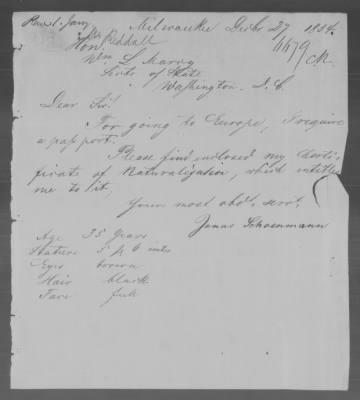 Milwaukee Decbr 27 1884.
Hon.
Wm L Marcy
Secty of State
Washington. D. C.
Dear Sir!
For going to Europe, I require
a passport.
Please find enclosed my Certi-
ficate of Naturalization, which entitles
me to it,
Yours most obdt. servt.
Jonas Schoenmann
Age 35 years
Stature 5 ft 6 inches
Eyes brown
Hair black
Face full